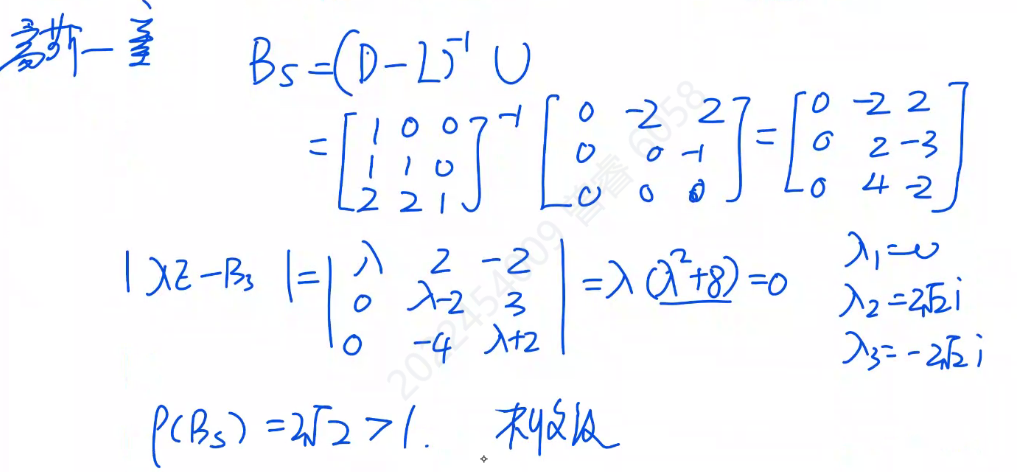 高斯一塞
B_S = (D-L)^{-1} U
= [1 0 0; 1 1 0; 2 2 1]^{-1} [0 -2 2; 0 0 -1; 0 0 0] = [0 -2 2; 0 2 -3; 0 4 -2]
|λE-B_S| = |λ 2 -2; 0 λ-2 3; 0 -4 λ+2| = λ(λ²+8) = 0
λ₁=0
λ₂=2√2i
λ₃=-2√2i
ρ(B_S) = 2√2 > 1.